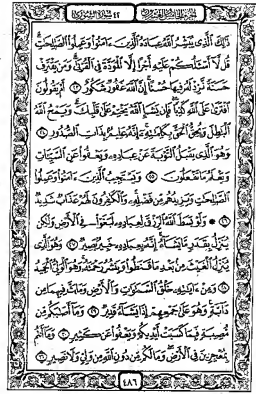 ذَٰلِكَ ٱلَّذِى يُبَشِّرُ ٱللَّهُ عِبَادَهُ ٱلَّذِينَ ءَامَنُوا۟ وَعَمِلُوا۟ ٱلصَّٰلِحَٰتِ
قُل لَّآ أَسْـَٔلُكُمْ عَلَيْهِ أَجْرًا إِلَّا ٱلْمَوَدَّةَ فِى ٱلْقُرْبَىٰ وَمَن يَقْتَرِفْ
حَسَنَةً نَّزِدْ لَهُۥ فِيهَا حُسْنًا إِنَّ ٱللَّهَ غَفُورٌ شَكُورٌ ٢٣ أَمْ يَقُولُونَ
ٱفْتَرَىٰ عَلَى ٱللَّهِ كَذِبًا فَإِن يَشَإِ ٱللَّهُ يَخْتِمْ عَلَىٰ قَلْبِكَ وَيَمْحُ ٱللَّهُ
ٱلْبَٰطِلَ وَيُحِقُّ ٱلْحَقَّ بِكَلِمَٰتِهِۦٓ إِنَّهُۥ عَلِيمٌۢ بِذَاتِ ٱلصُّدُورِ ٢٤
وَهُوَ ٱلَّذِى يَقْبَلُ ٱلتَّوْبَةَ عَنْ عِبَادِهِۦ وَيَعْفُوا۟ عَنِ ٱلسَّيِّـَٔاتِ
وَيَعْلَمُ مَا تَفْعَلُونَ ٢٥ وَيَسْتَجِيبُ ٱلَّذِينَ ءَامَنُوا۟ وَعَمِلُوا۟
ٱلصَّٰلِحَٰتِ وَيَزِيدُهُم مِّن فَضْلِهِۦ وَٱلْكَٰفِرُونَ لَهُمْ عَذَابٌ شَدِيدٌ
٢٦ ۞ وَلَوْ بَسَطَ ٱللَّهُ ٱلرِّزْقَ لِعِبَادِهِۦ لَبَغَوْا۟ فِى ٱلْأَرْضِ وَلَٰكِن
يُنَزِّلُ بِقَدَرٍ مَّا يَشَآءُ إِنَّهُۥ بِعِبَادِهِۦ خَبِيرٌۢ بَصِيرٌ ٢٧ وَهُوَ ٱلَّذِى
يُنَزِّلُ ٱلْغَيْثَ مِنۢ بَعْدِ مَا قَنَطُوا۟ وَيَنشُرُ رَحْمَتَهُۥ وَهُوَ ٱلْوَلِىُّ ٱلْحَمِيدُ
٢٨ وَمِنْ ءَايَٰتِهِۦ خَلْقُ ٱلسَّمَٰوَٰتِ وَٱلْأَرْضِ وَمَا بَثَّ فِيهِمَا مِن
دَآبَّةٍ وَهُوَ عَلَىٰ جَمْعِهِمْ إِذَا يَشَآءُ قَدِيرٌ ٢٩ وَمَآ أَصَٰبَكُم مِّن
مُّصِيبَةٍ فَبِمَا كَسَبَتْ أَيْدِيكُمْ وَيَعْفُوا۟ عَن كَثِيرٍ ٣٠ وَمَآ أَنتُم
بِمُعْجِزِينَ فِى ٱلْأَرْضِ وَمَا لَكُم مِّن دُونِ ٱللَّهِ مِن وَلِىٍّ وَلَا نَصِيرٍ ٣١
٤٨٦